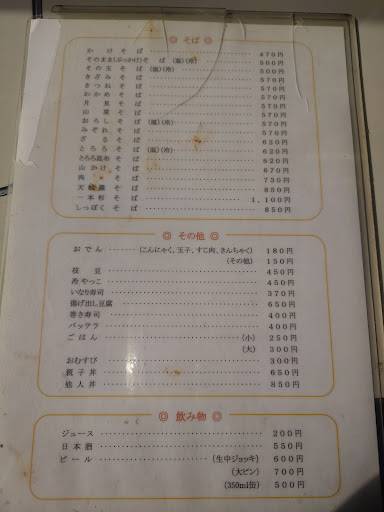 ◎ そば ◎
かけそば 470円
そのまま(ぶっかけ)そば (温)(冷) 500円
その玉そば (温)(冷) 500円
きざみそば 570円
きつねそば 570円
わかめそば 570円
月見そば 570円
山菜そば 570円
おろしそば (温)(冷) 570円
みぞれそば 620円
ざるそば 620円
とろろそば (温)(冷) 620円
とろろ昆布そば 620円
山かけそば 670円
肉そば 730円
天婦羅そば 850円
一本杉そば 1,100円
しっぽくそば 850円
◎ その他 ◎
おでん (こんにゃく、玉子、すじ肉、きんちゃく) 180円
(その他) 150円
枝豆 450円
冷やっこ 450円
いなり寿司 370円
揚げ出し豆腐 650円
巻き寿司 400円
バッテラ 400円
ごはん (小) 250円
(大) 300円
おむすび 300円
親子丼 650円
他人丼 850円
◎ 飲み物 ◎
ジュース 200円
日本酒 550円
ビール (生中ジョッキ) 600円
(大ビン) 700円
(350ml缶) 500円